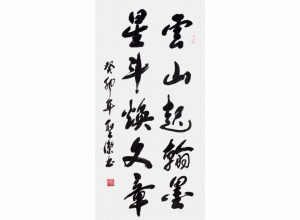 雲山起翰墨
星斗煥文章
癸卯年聖潔書